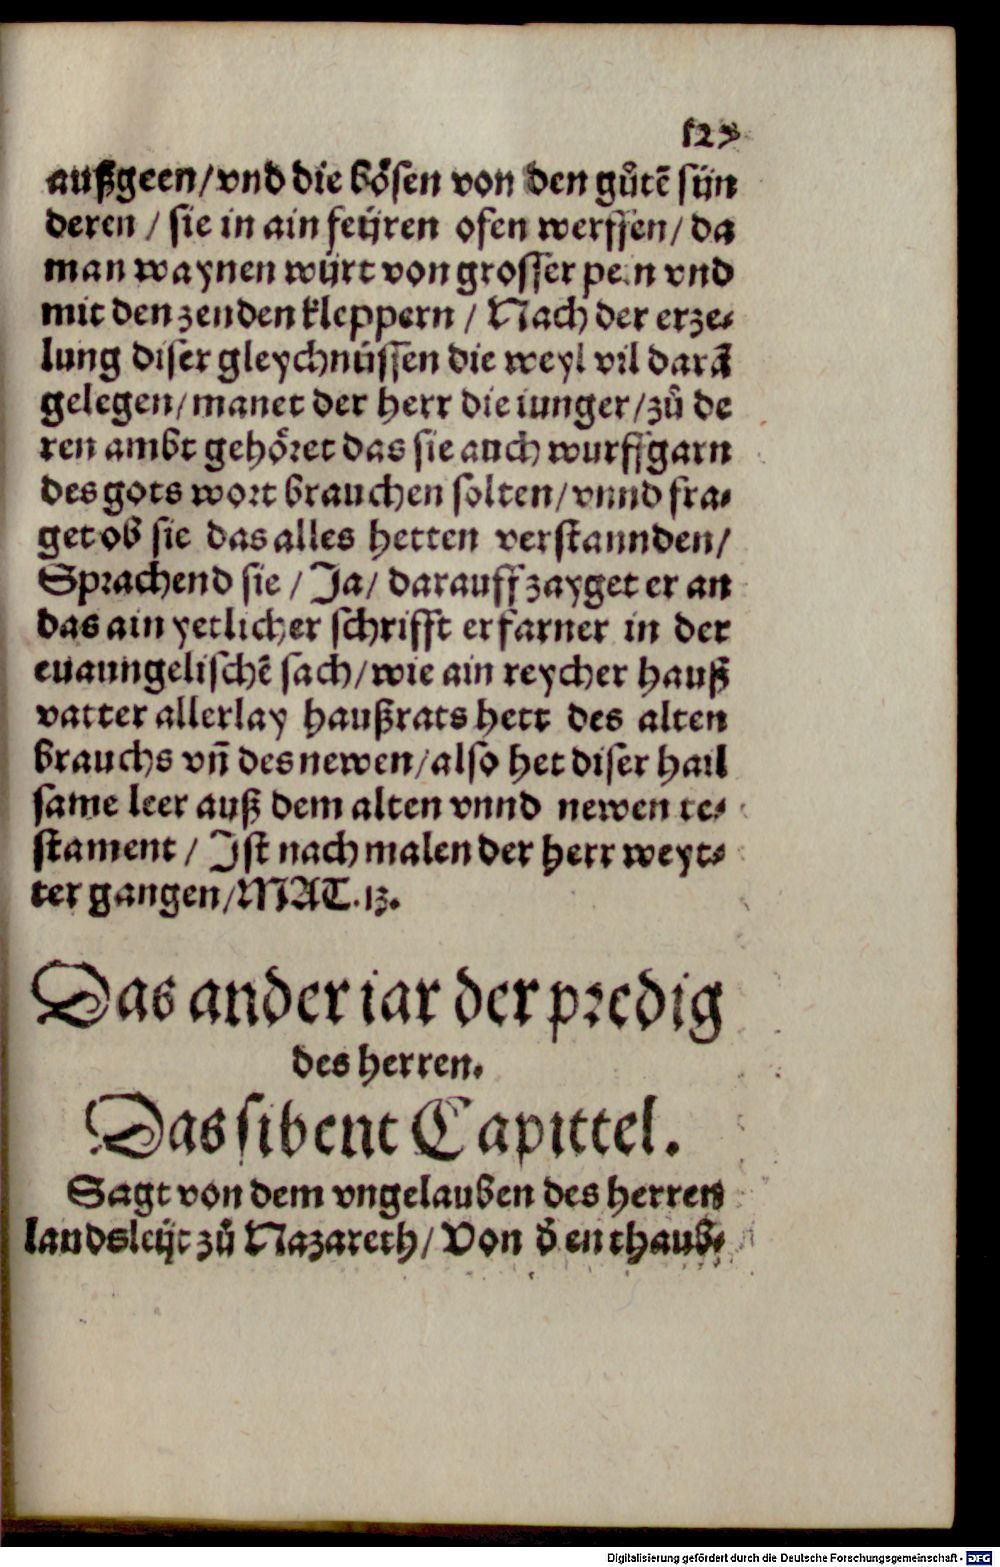 außgeen/vnd die bösen von den gůtē sün
deren / sie in ain feüren ofen werffen/ da
man waynen würt von grosser pein vnd
mit den zenden kleppern / Nach der erze⸗
lung diser gleychnüssen die weyl vil darā
gelegen/manet der herr die iunger/zů de
ren ambt gehöret das sie auch wurffgarn
des gots wort brauchen solten/vnnd fra⸗
get ob sie das alles hetten verstannden/
Sprachend sie / Ja/ darauff zayget er an
das ain yetlicher schrifft erfarner in der
euanngelischē sach/wie ain reycher hauß
vatter allerlay haußrats hett des alten
brauchs vn̄ des newen/also het diser hail
same leer auß dem alten vnnd newen te⸗
stament / Ist nachmalen der herr weyt⸗
ter gangen/MAT.13.
Das ander iar der predig
des herren.
Das sibent Capittel.
Sagt von dem vngelauben des herren
landsleüt zů Nazareth/ Von d̕ enthaub⸗
Digitalisierung gefördert durch die Deutsche Forschungsgemeinschaft - DFG